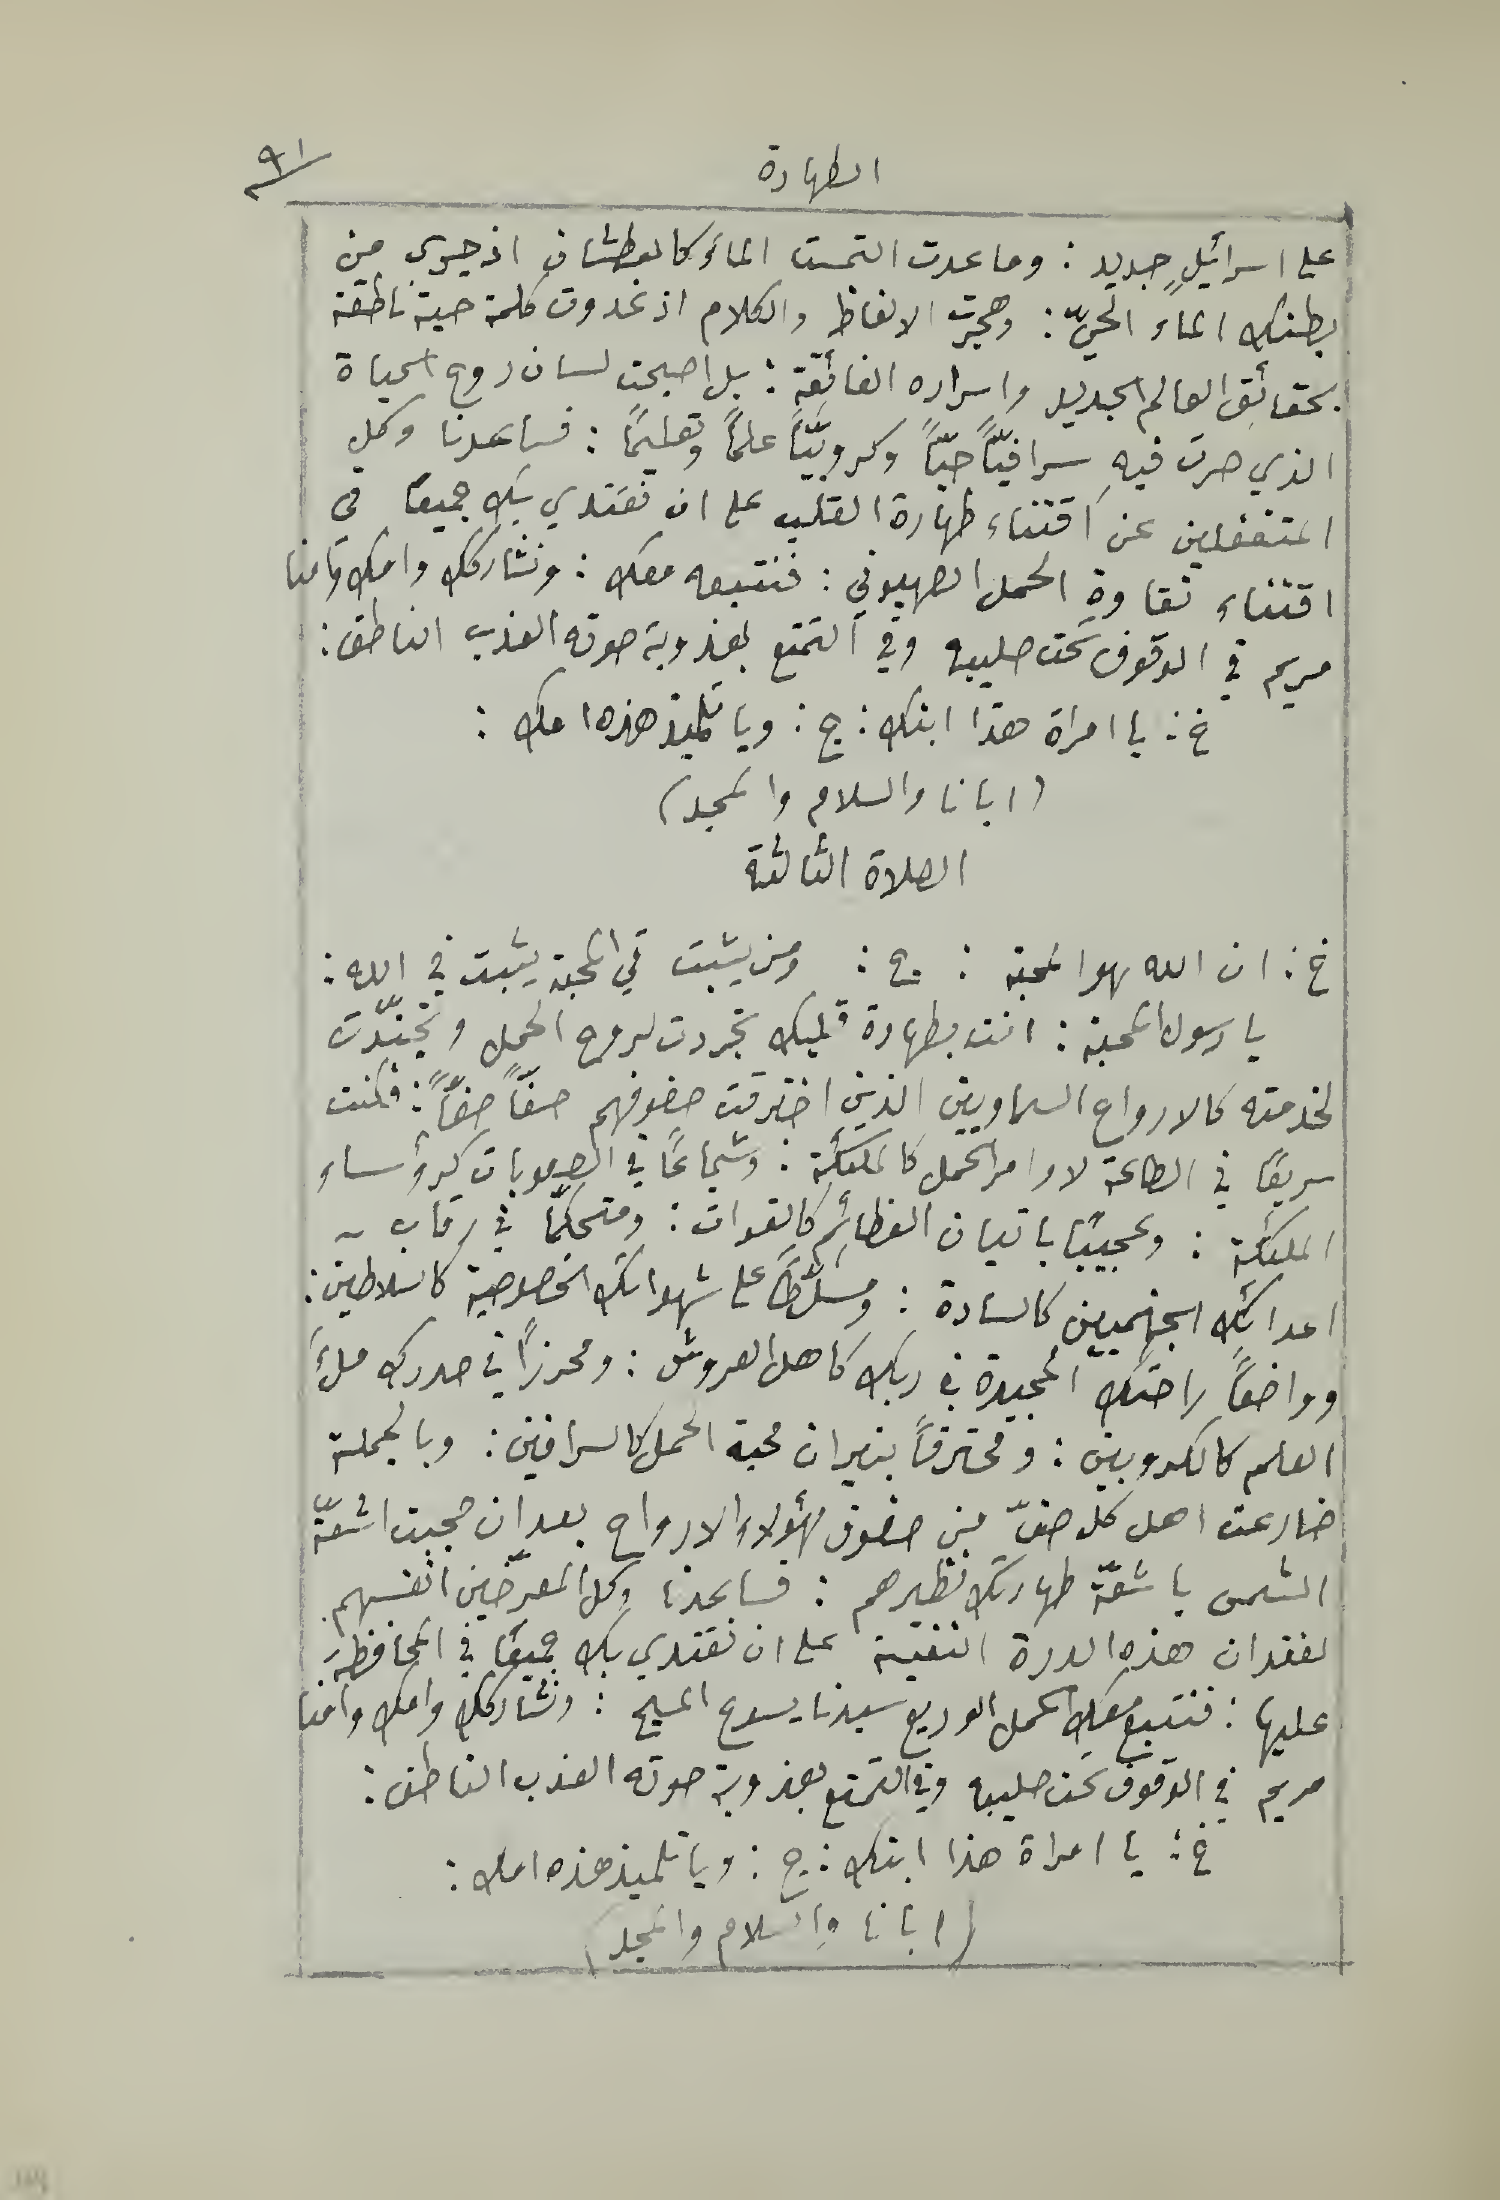 الطهارة
٩١
على اسرائيلٍ جديد : وما عدت التمست الماءَ كالعطشان اذ جرى من
بطنك الماءُ الحيّ : وهجرت الالفاظ والكلام اذ غدوت كلمة حية ناطقة
بحقائق العالم الجديد واسراره الفائقة : بل اصبحت لسان روح الحياة
الذي صرت فيه سرافيّاً حبّاً وكروبيّاً علماً وتعليماً : فساعدنا وكل
المتغفلين عن اقتناء طهارة القلب على ان نقتدي بك جميعاً في
اقتناء نقاوة الحمل الصهيوني : فنتبعه معك : ونشاركك وامك وامنا
مريم في الوقوف تحت صليبه وفي التمتع بعذوبة صوته العذب الناطق :
خ : يا امراة هذا ابنك : ج : ويا تلميذ هذه امك :
( ابانا والسلام والمجد )
الصلاة الثالثة
خ : ان الله هو المحبة : ج : ومن يثبت في المحبة يثبت في الله :
يا رسول المحبة : انت بطهارة قلبك تجردت لروح الحمل وتجنّدت
لخدمته كالارواح السماويين الذين اخترقت صفوفهم صفّاً صفّاً : فكنت
سريعًا في الطاعة لاوامر الحمل كالملئكة : وشجاعًا في الصعوبات كرؤساء
الملئكة : وعجيبًا باتيان العظائم كالقوات : ومتحكمًا في رقاب
اعدائك الجهنميين كالسادة : ومسلّطًا على شهواتك الخصوصية كالسلاطين :
وواضعاً راحتك المجيدة في ربك كاهل العروش : ومحرزاً في صدرك ملءَ
العلم كالكروبين : ومحترقاً بنيران محبة الحمل كالسرافين : وبالجملة
ضارعت اهل كل صفّ من صفوف هؤلاء الارواح بعد ان حجبت اشعّة
الشمس باشعّة طهارتك نظيرهم : فساعدنا وكل المعرّضين انفسهم
لفقدان هذه الدرة النقيّة على ان نقتدي بك جميعًا في المحافظة
عليها : فنتبع معك الحمل الوديع سيدنا يسوع المسيح : ونشاركك وامك وامنا
مريم في الوقوف تحت صليبه وفي التمتع بعذوبة صوته العذب الناطق :
خ : يا امراة هذا ابنك : ج : ويا تلميذ هذه امك :
( ابانا والسلام والمجد )